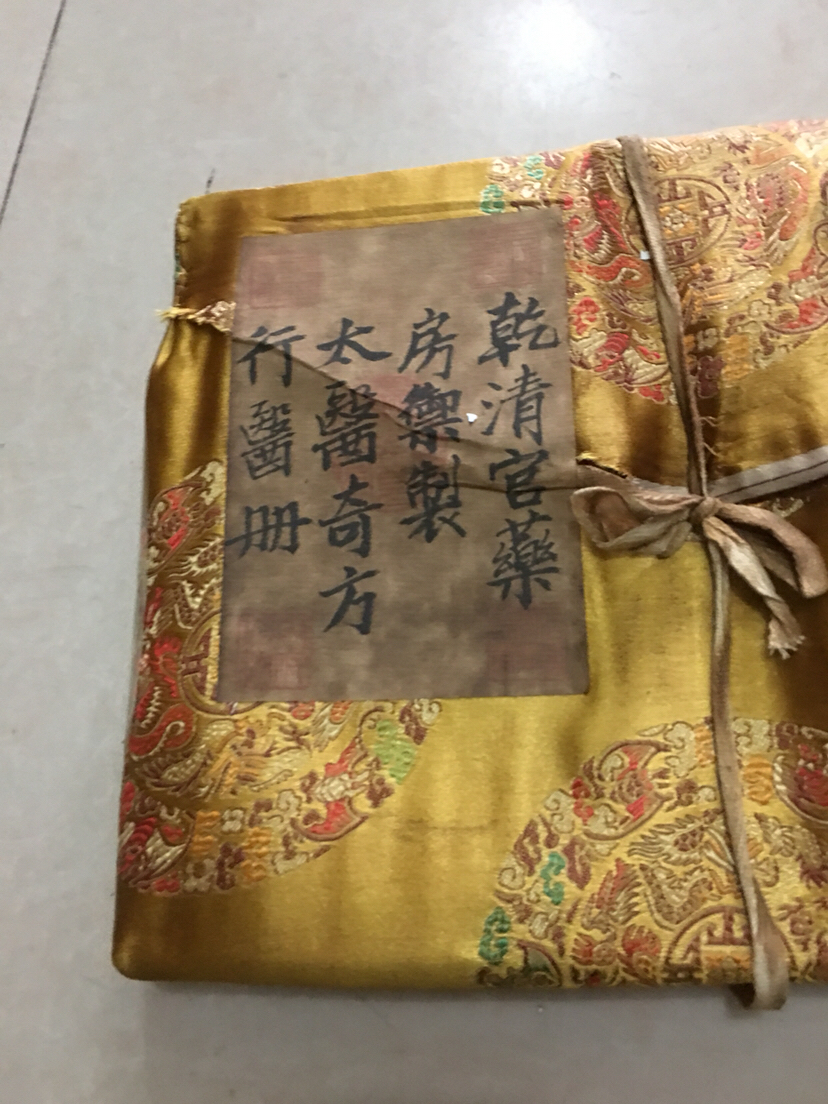 乾清宫藥
房禦製
太醫奇方
行醫册